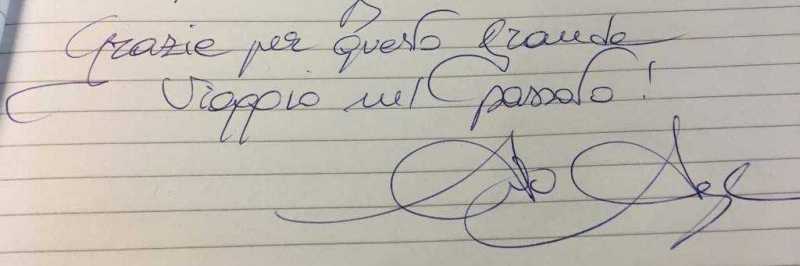 Grazie per questo grande
viaggio nel passato!